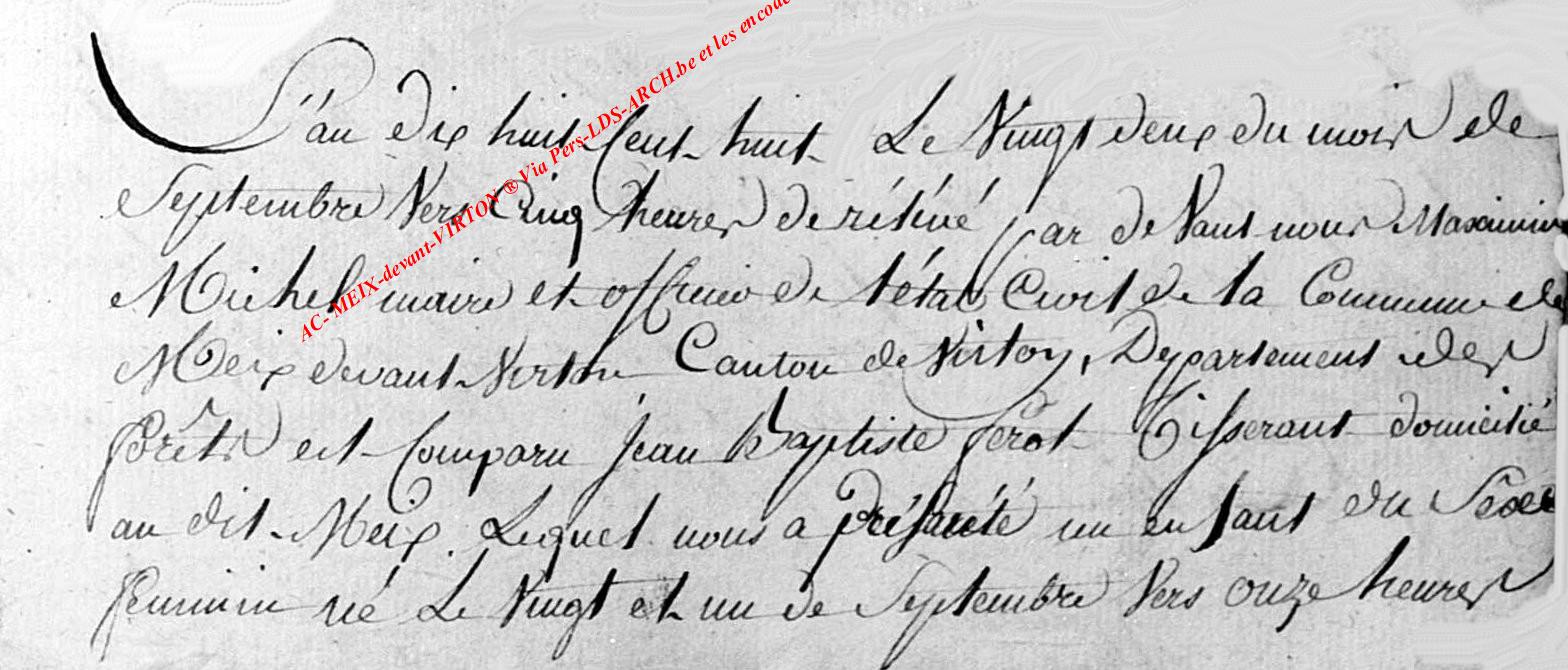 L'an dix huit Cent huit Le Vingt deux du mois de
Septembre Vers Cinq heures de rélévé par de Vant nous Maximin
Michel maire et officier de l'état Civil de la Commune de
Meix devant Virton Canton de Virton, Département des
forêts est Comparu Jean Baptiste ferot Tisserant domicilié
au dit Meix. Lequel nous a présenté un enfant du Sexe
feminin né Le Vingt et un de Septembre Vers onze heures
AC- MEIX-devant-VIRTON ® Via Pers-LDS-ARCH.be et les encode